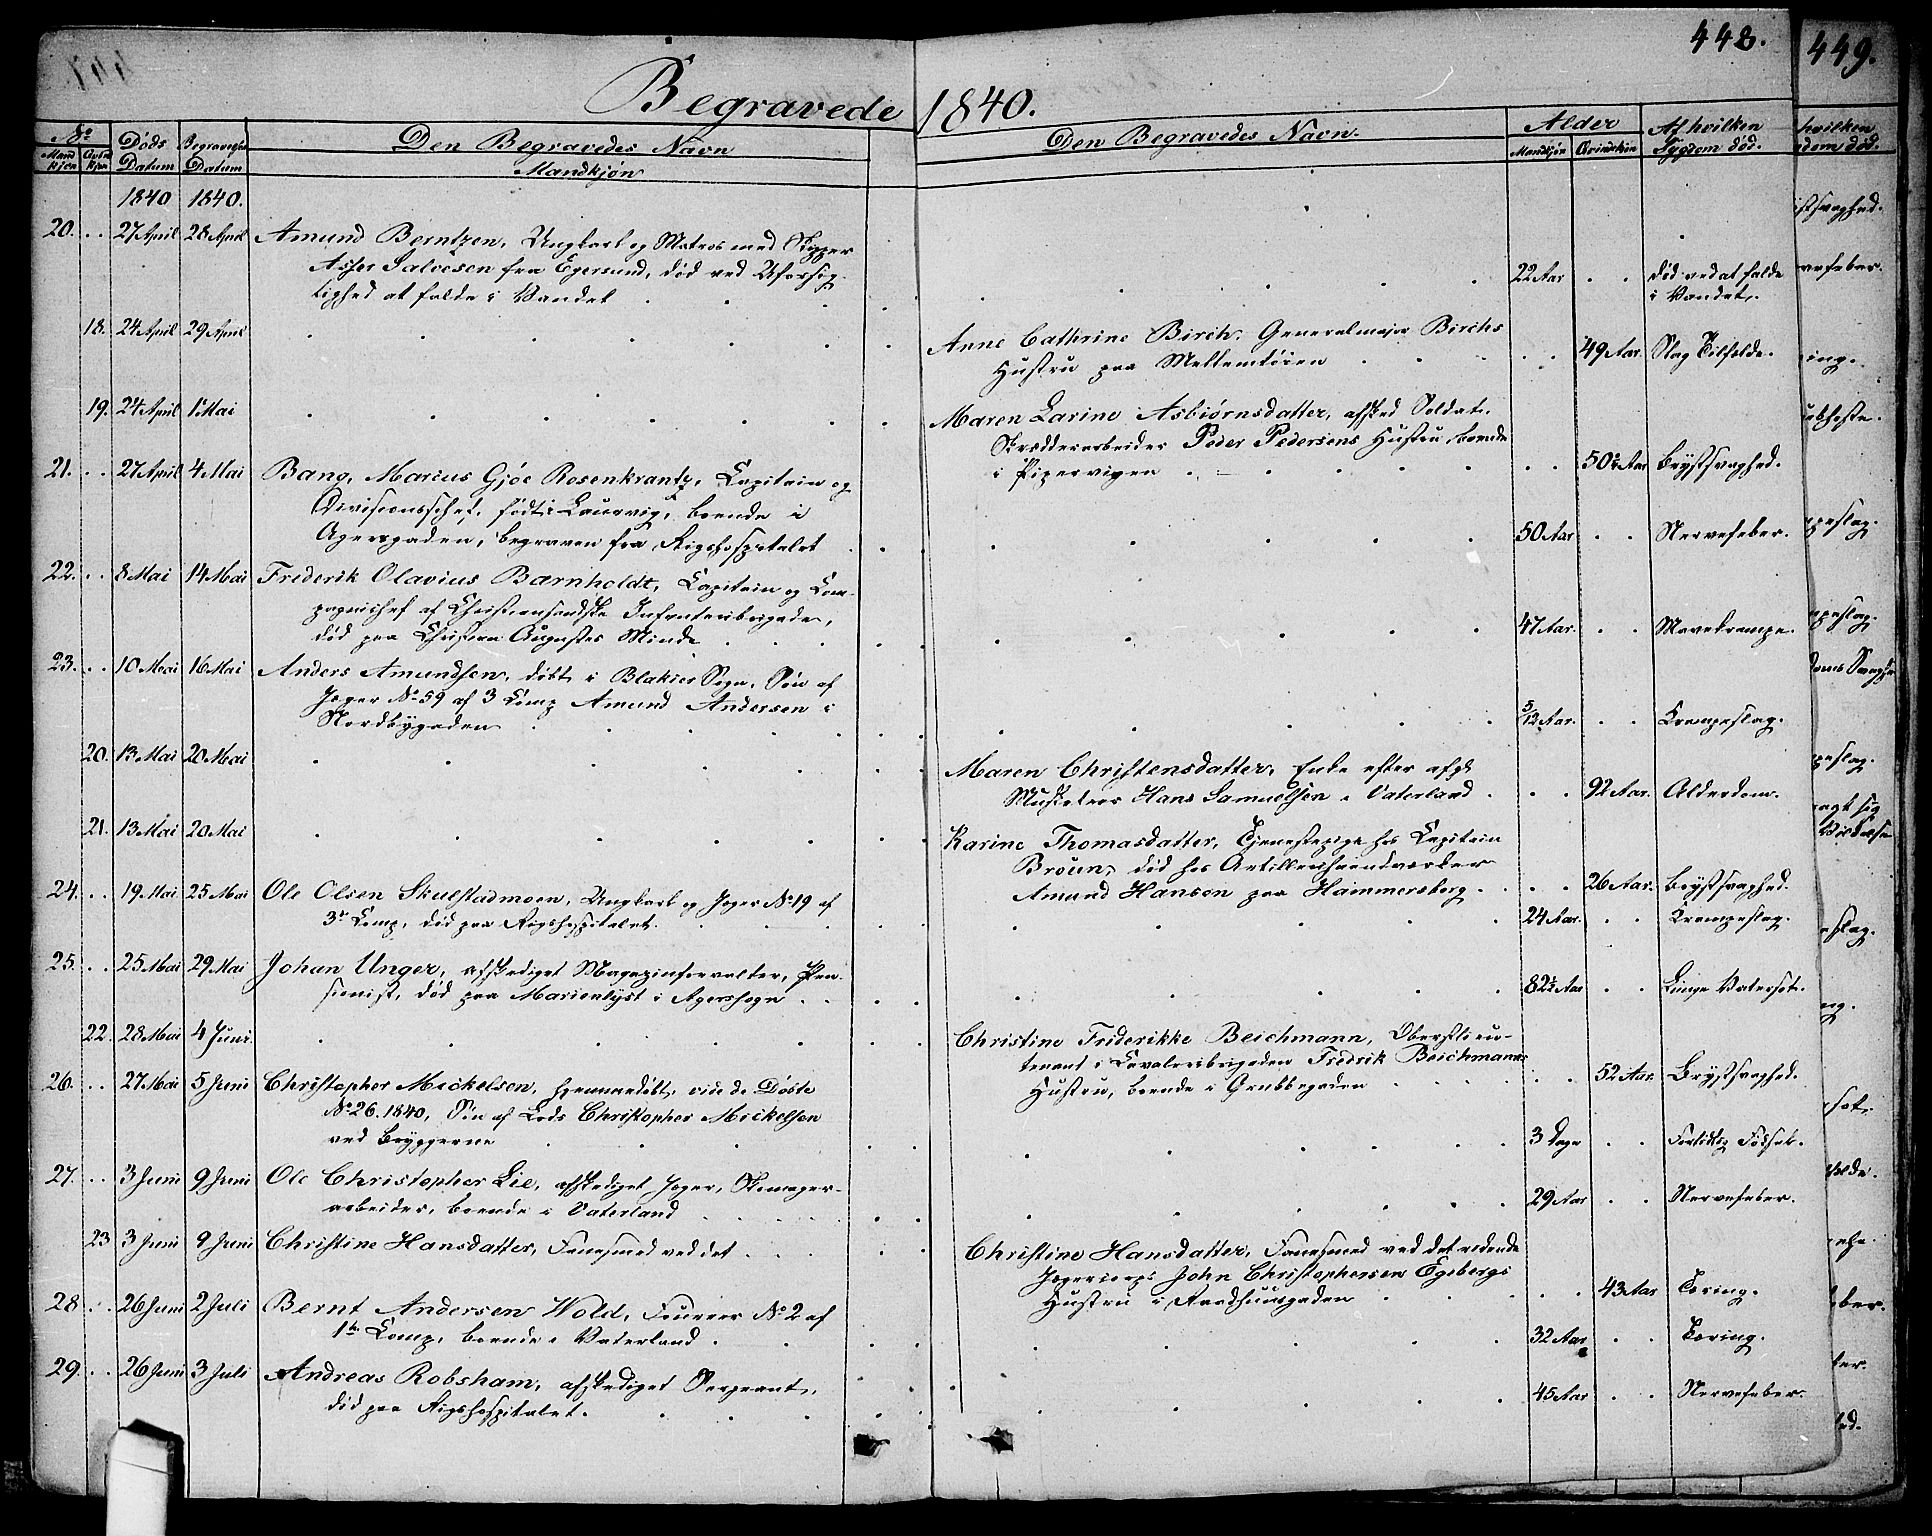 448.
449.
Begravede 1840.
No
Mand kjøn
Qvin kjøn
Døds Datum
Begravelses Datum
Den Begravedes Navn
Mandkjøn
Den Begravedes Navn.
Alder
Mandkjøn
Qvindekjøn
Af hvilken Sygdom død.
1840 1840.
20. 27 April 28 April Amund Berntzen, Ungkarl og Matros med Skipper
Asser Salvesen fra Egersund, død ved Uforsig-
tighed at falde i Vandet
22 Aar død ved at falde
i Vandet.
18. 24 April 29 April Anne Cathrine Birch, Generalmajor Birchs
Hustru paa Mellemtøien 49 Aar. Slag Tilfælde.
19. 24 April 1 Mai Maren Larine Asbiørnsdatter, afsked Soldat,
Skrædderarbeider Peder Pedersens Hustru boende
i Pipervigen 50½ Aar Brystsvaghed.
21. 27 April 4 Mai Bang, Marius Gjøe Rosenkrantz, Capitain og
Divisionschef, født i Laurvig, boende i
Agersgaden, begraven fra Rigshospitalet 50 Aar Nervefeber.
22. 8 Mai 14 Mai Frederik Olavius Barnholdt, Capitain og Com-
pagnichef af Christiansandske Infanteribrigade,
død paa Christian Augustes Minde 47 Aar. Mavekrampe.
23. 10 Mai 16 Mai Anders Amundsen, døbt i Blakier Sogn, Søn af
Jæger No 59 af 3 Comp Amund Andersen i
Nordbygaden 5/12 Aar. Krampeslag.
20. 13 Mai 20 Mai Maren Christensdatter, Enke efter afgk
Musketeer Hans Samuelsen i Vaterland 92 Aar. Alderdom.
21. 13 Mai 20 Mai Karine Thomasdatter, Tjenestepige hos Capitain
Broun, død hos Artillerihaandværker
Amund Hansen paa Hammersborg 26 Aar. Brystsvaghed.
24. 19 Mai 25 Mai Ole Olsen Skulstadmoen, Ungkarl og Jæger No 19 af
3e Comp, død paa Rigshospitalet. 24 Aar. Krampeslag.
25. 25 Mai 29 Mai Johan Unger, afskediget Magazinforvalter, Pen-
sionist, død paa Marienlyst i Agersogn 82½ Aar Lunge Vatersot.
22. 28 Mai 4 Juni. Christine Friderikke Beichmann, Oberstlieu-
tenant i Cavaleribrigaden Fredrik Beichmanns
Hustru, boende i Grubbegaden 52 Aar. Brystsvaghed.
26. 27 Mai 5 Juni Christopher Mickelsen, hjemmedøbt, vide de Døbte
No 26. 1840, Søn af Lods Christopher Mickelsen
ved Bryggerne 3 Dage Fortidlig Fødsel.
27. 3 Juni 9 Juni Ole Christopher Lie, afskediget Jæger, Skomager-
arbeider, boende i Vaterland 29 Aar Nervefeber.
23 3 Juni 9 Juni Christine Hansdatter, Fanesmed ved det
Christine Hansdatter, Fanesmed ved det ridende
Jægercorps John Christophersen Egebergs
Hustru i Raadhuusgaden 43 Aar Tæring.
28 26 Juni 2 Juli Bernt Andersen Wold, Fourer No 2 af
1te Comp, boende i Vaterland. 32 Aar Tæring.
29. 26 Juni 3 Juli Andreas Robsham, afskediget Sergeant,
død paa Rigshospitalet. 45 Aar Nervefeber.